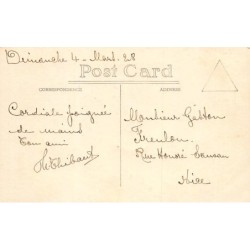 Dimanche 4 - Mars. 28
Post Card
CORRESPONDENCE
ADDRESS
Cordiale poignée
de mains
Ton ami
Monsieur
Rue Honoré
Nice